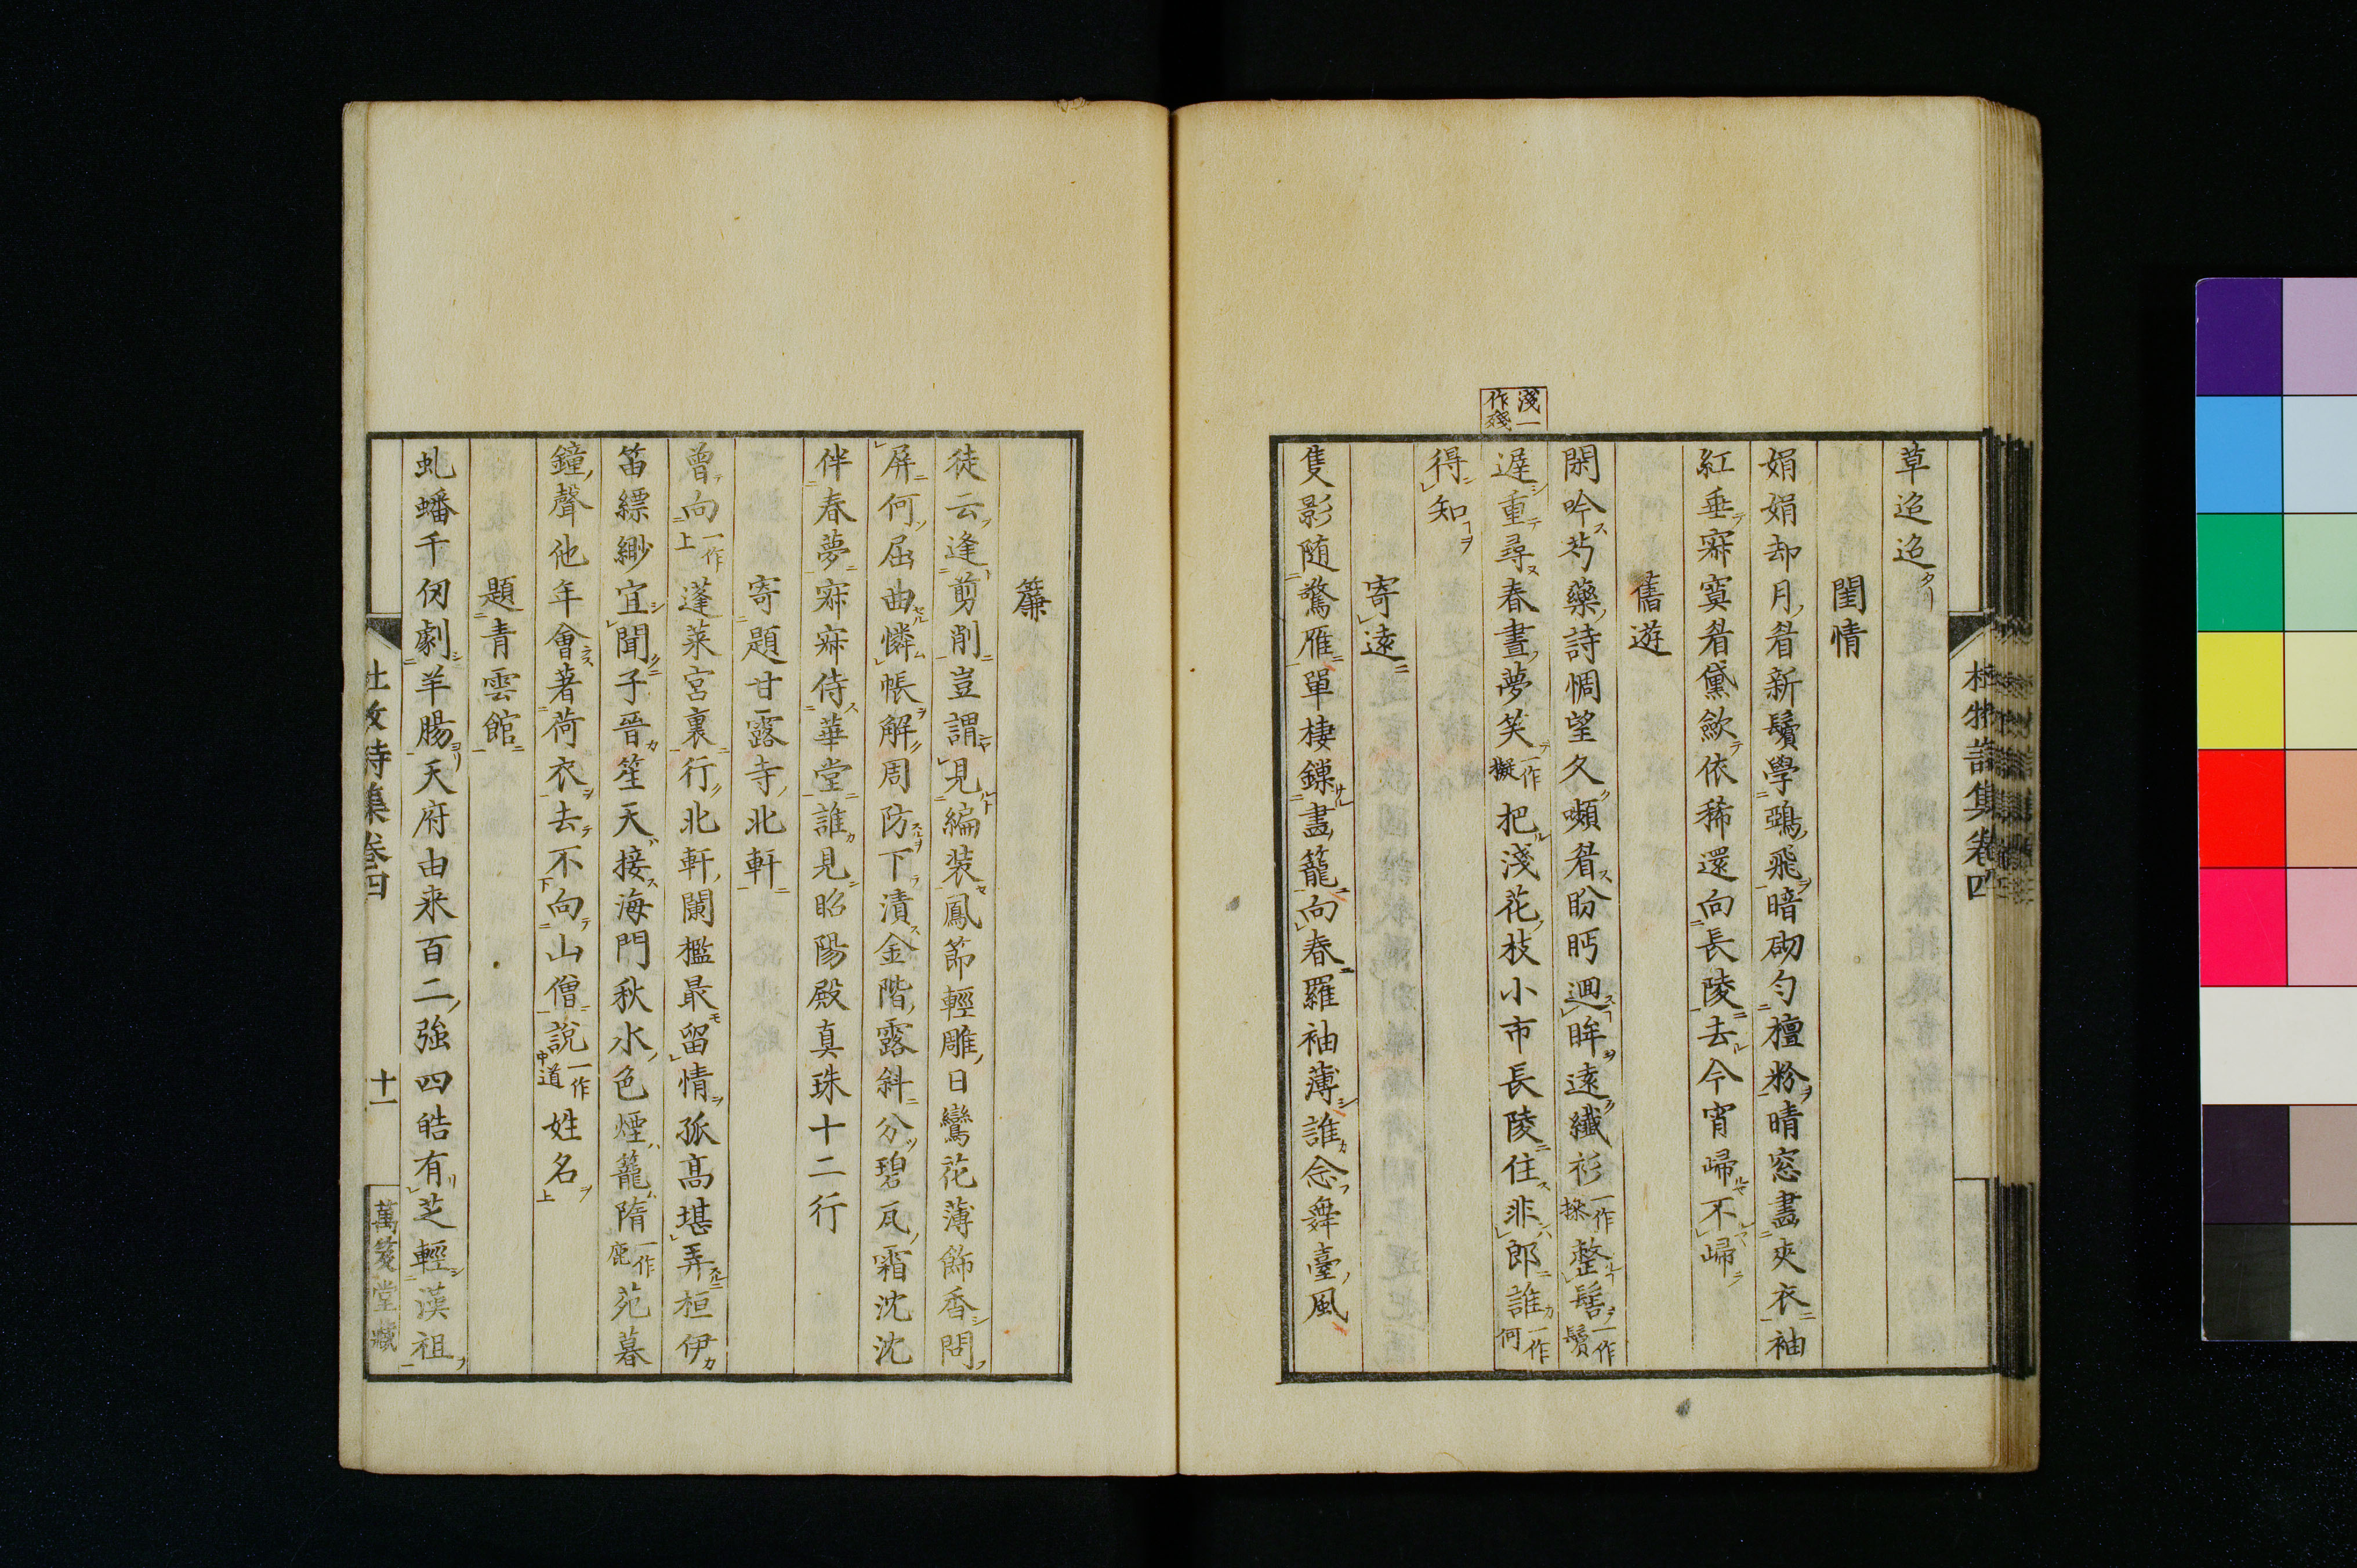 草迢迢
閨情
娟娟却月眉新鬢學鵶飛暗砌勻檀粉晴窓畫夾衣袖
紅垂寂寞眉黛歛依稀還向長陵去今宵歸不歸
舊遊
閑吟芍藥詩悵望久嚬眉盼眄迴眸遠纖衫一作摻整髻一作鬟
遲重尋春晝夢笑一作擬把淺花枝小市長陵住非郎誰一作何
得知
淺一作殘
寄遠
隻影隨驚雁單棲鏁畫籠向春羅袖薄誰念舞臺風
杜牧詩集卷四
簾
徒云逢剪削豈謂見編装鳳節輕雕日鸞花薄飾香問
屏何屈曲憐帳解周防下漬金階露斜分碧瓦霜沈沈
伴春夢寂寂侍華堂誰見昭陽殿真珠十二行
寄題甘露寺北軒
曾向一作上蓬萊宮裏行北軒闌檻最留情孤高堪弄桓伊
笛縹緲宜聞子晉笙天接海門秋水色煙籠隋一作鹿苑暮
鐘聲他年會著荷衣去不向山僧說一作道姓名
題青雲館
虬蟠千仞劇羊腸天府由来百二強四皓有芝輕漢祖
杜牧詩集卷四
十一
萬笈堂藏